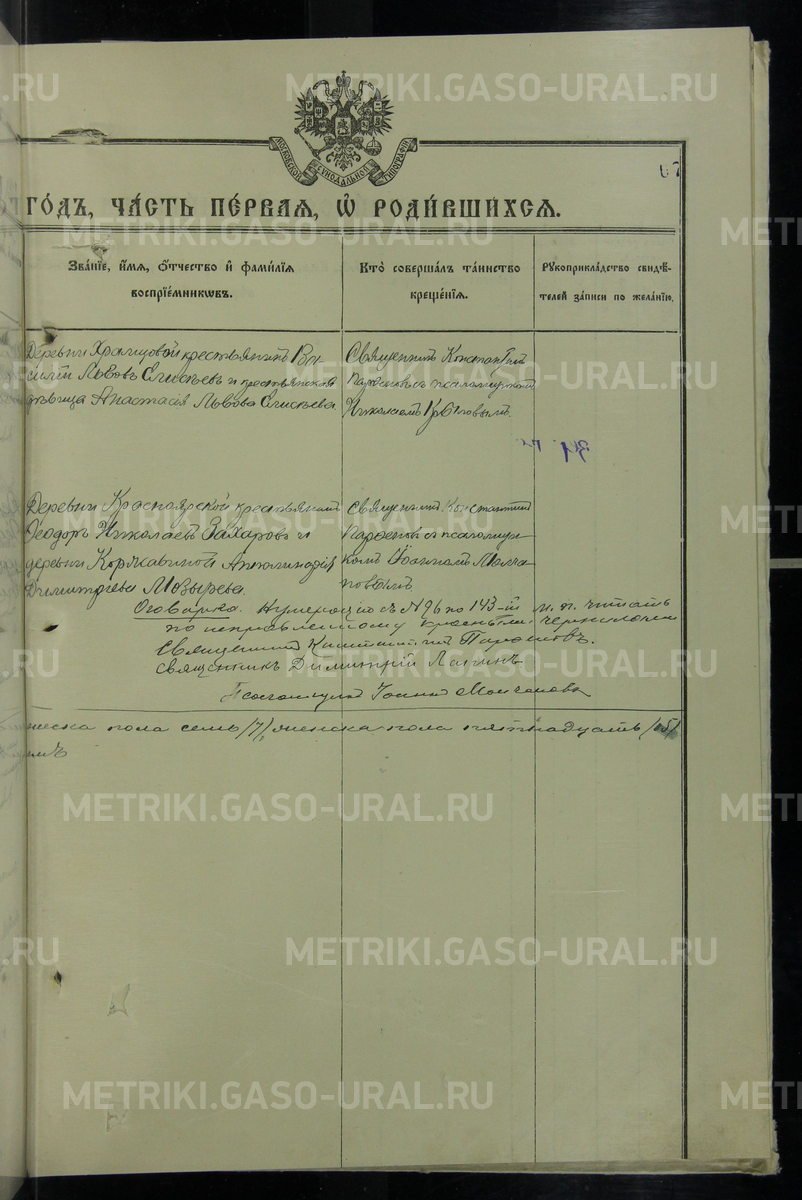 METRIKI.GASO-URAL.RU
МОСКОВСКОЙ СѴНОДАЛЬНОЙ ТИПОГРАФІИ
67
ГО́ДЪ, ЧА́СТЬ ПЕ́РВАЯ, Ѡ҆ РОДИ́ВШИХСЯ.
Зва́нїе, и҆́мя, ѻ҆́тчество и҆ фами́лїя воспрїе́мникѡвъ.
Кто̀ соверша́лъ та́инство креще́нїя.
Рꙋкоприкла́дство свидѣ́телей за́писи по жела́нїю.
Деревни Храмцовой крестьянинъ Ва
силій Львовъ Елисѣевъ и крестьянская
дѣвица Анастасія Львова Елисѣева
Священникъ Константинъ
Парѳеновъ съ псаломщикомъ
Николаемъ
Деревни Красноярской крестьянинъ
Ѳеодоръ Николаевъ Захаровъ и
деревни Корюкавиной Апполинарія
Димитріева Мозырева
Священникъ Константинъ
Парѳеновъ съ псаломщи
комъ Іоанномъ Молча
новымъ
Оговорка. Нумерацію съ №96 по 143-й м. п. читать
по исправленному красными чернилами
Священникъ Константинъ Парѳеновъ.
Священникъ Димитрій Ляпинъ
Псаломщикъ Іоаннъ Молчановъ
жеска пола семь /7/, женска пола пятнадцать /15/